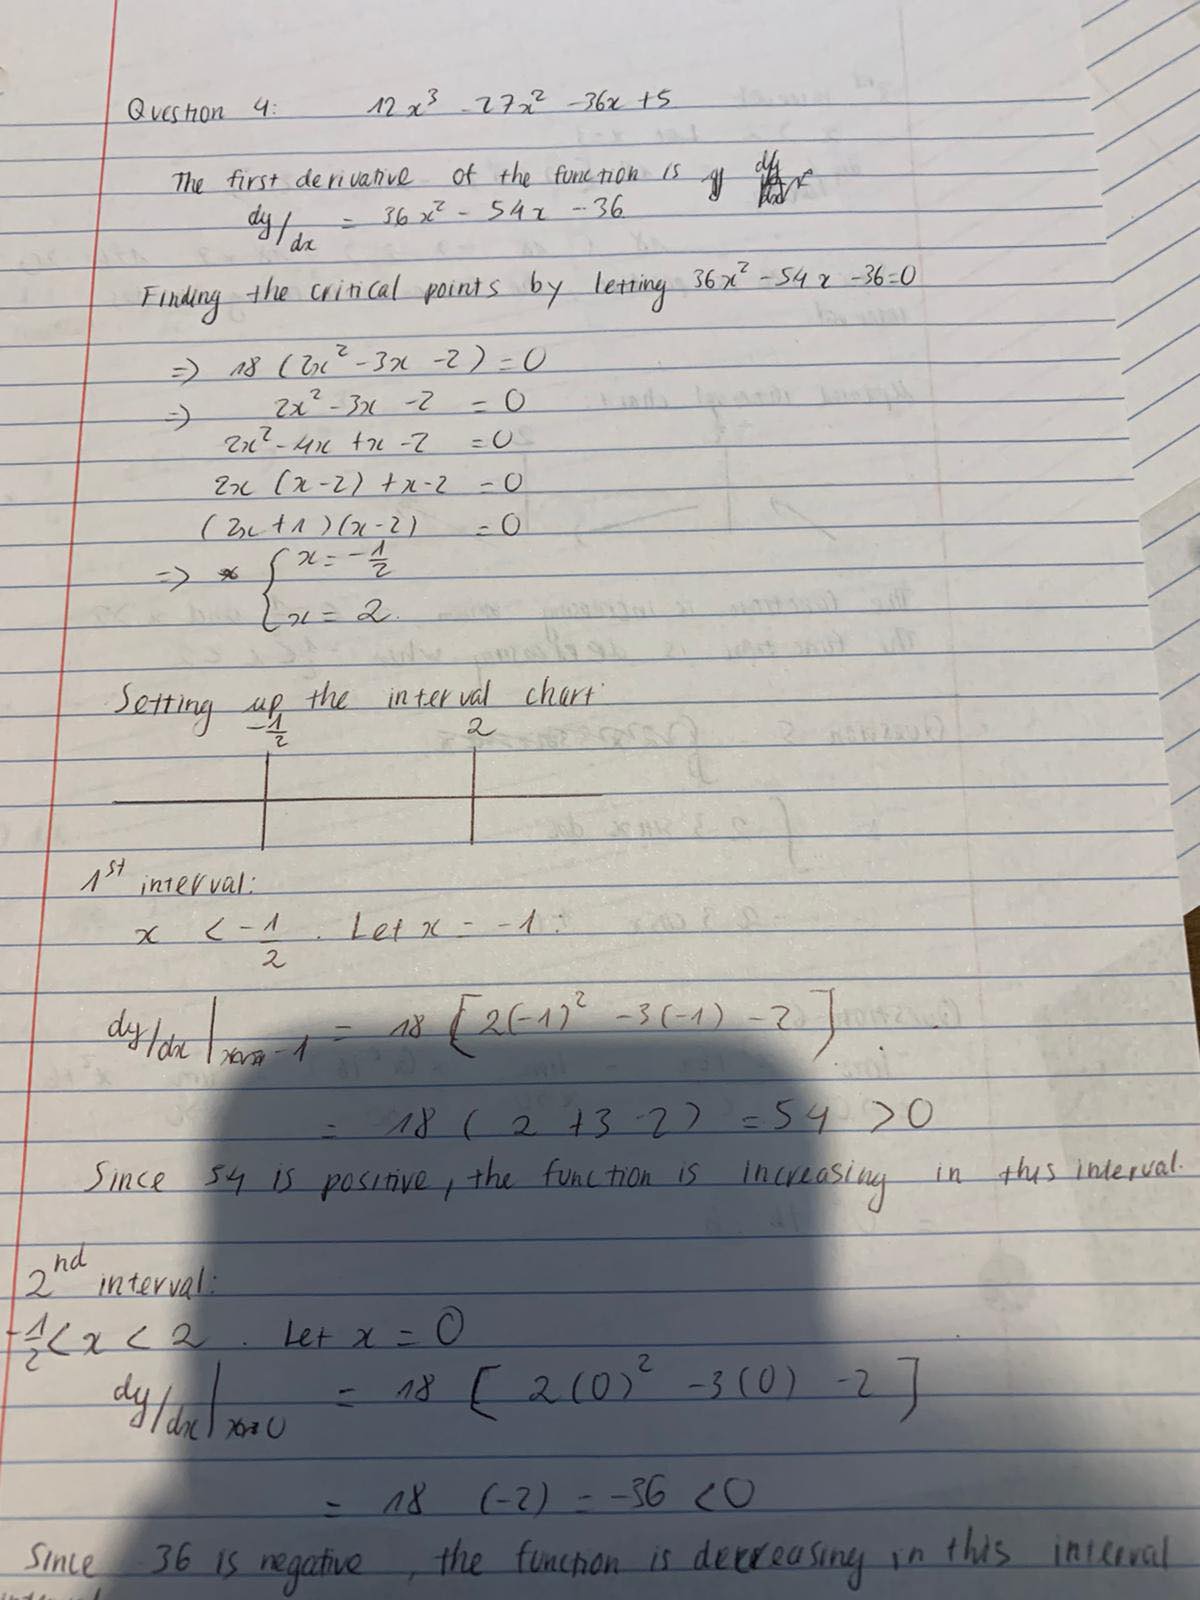 Question 4: 12x³ -27x² -36x +5
The first derivative of the function is y
dy/dx = 36x² - 54x - 36
Finding the critical points by letting 36x² -54x -36=0
=> 18 (2x² -3x -2) = 0
=> 2x² -3x -2 = 0
2x² -4x +x -2 = 0
2x (x-2) +x-2 = 0
(2x+1)(x-2) = 0
=> { x = -1/2
x = 2.
Setting up the interval chart
-1/2 2
1st interval:
x < -1/2 . Let x = -1:
dy/dx | -1 = 18 [2(-1)² -3(-1) -2]
= 18 ( 2 +3 -2) = 54 > 0
Since 54 is positive, the function is increasing in this interval.
2nd interval:
-1/2 < x < 2 . Let x = 0
dy/dx | 0 = 18 [ 2(0)² -3(0) -2 ]
= 18 (-2) = -36 <0
Since 36 is negative, the function is decreasing in this interval